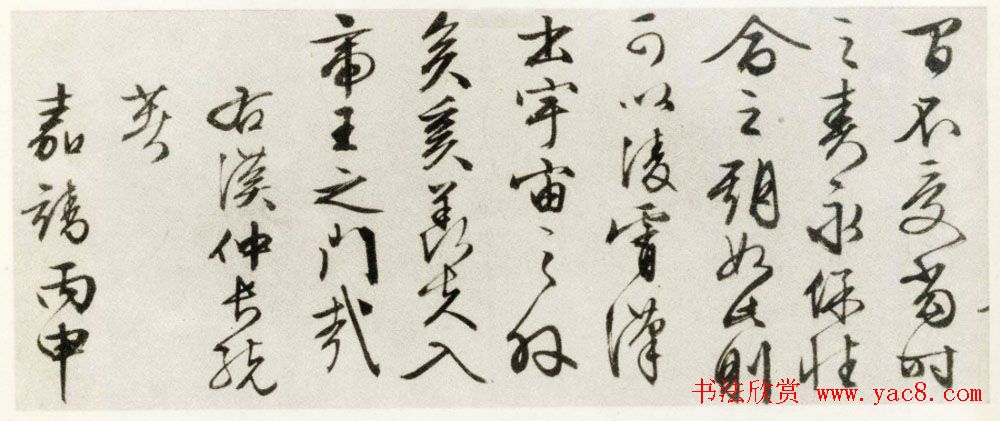 間不受當时
之責永保性
命之期如此則
可以陵霄漢
出宇宙之外
矣奚羡夫入
帝王之門哉
右漢仲長統
嘉靖丙申
书法欣赏 www.yac8.com